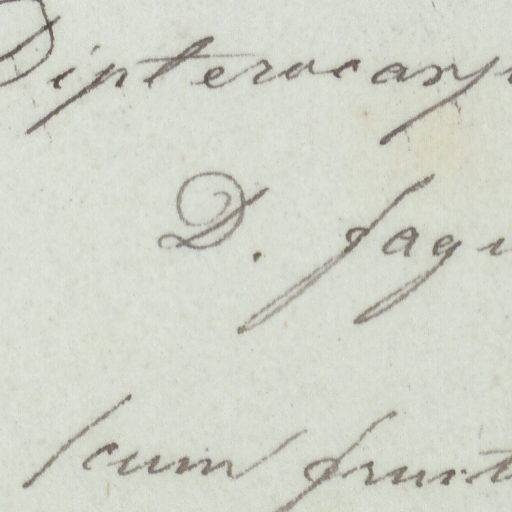 Dipterocarp
D. fagi
(cum fruct